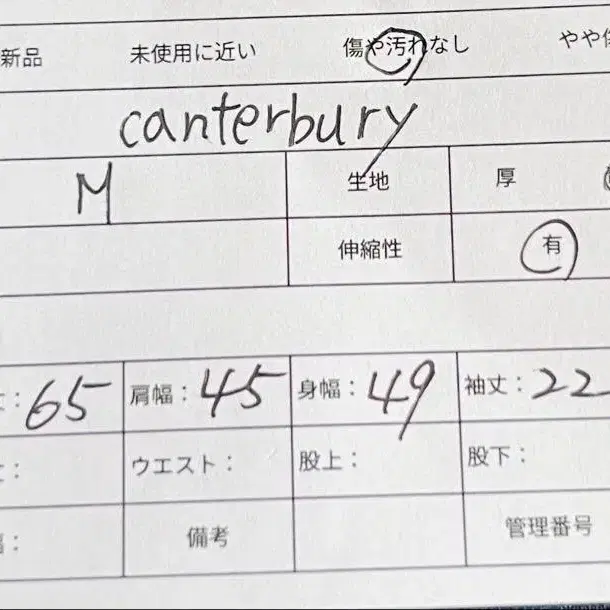 新品 未使用に近い 傷や汚れなし やや
canterbury
M 生地 厚
伸縮性 有
: 65 肩幅: 45 身幅: 49 袖丈: 22
: ウエスト: 股上: 股下:
: 備考 管理番号